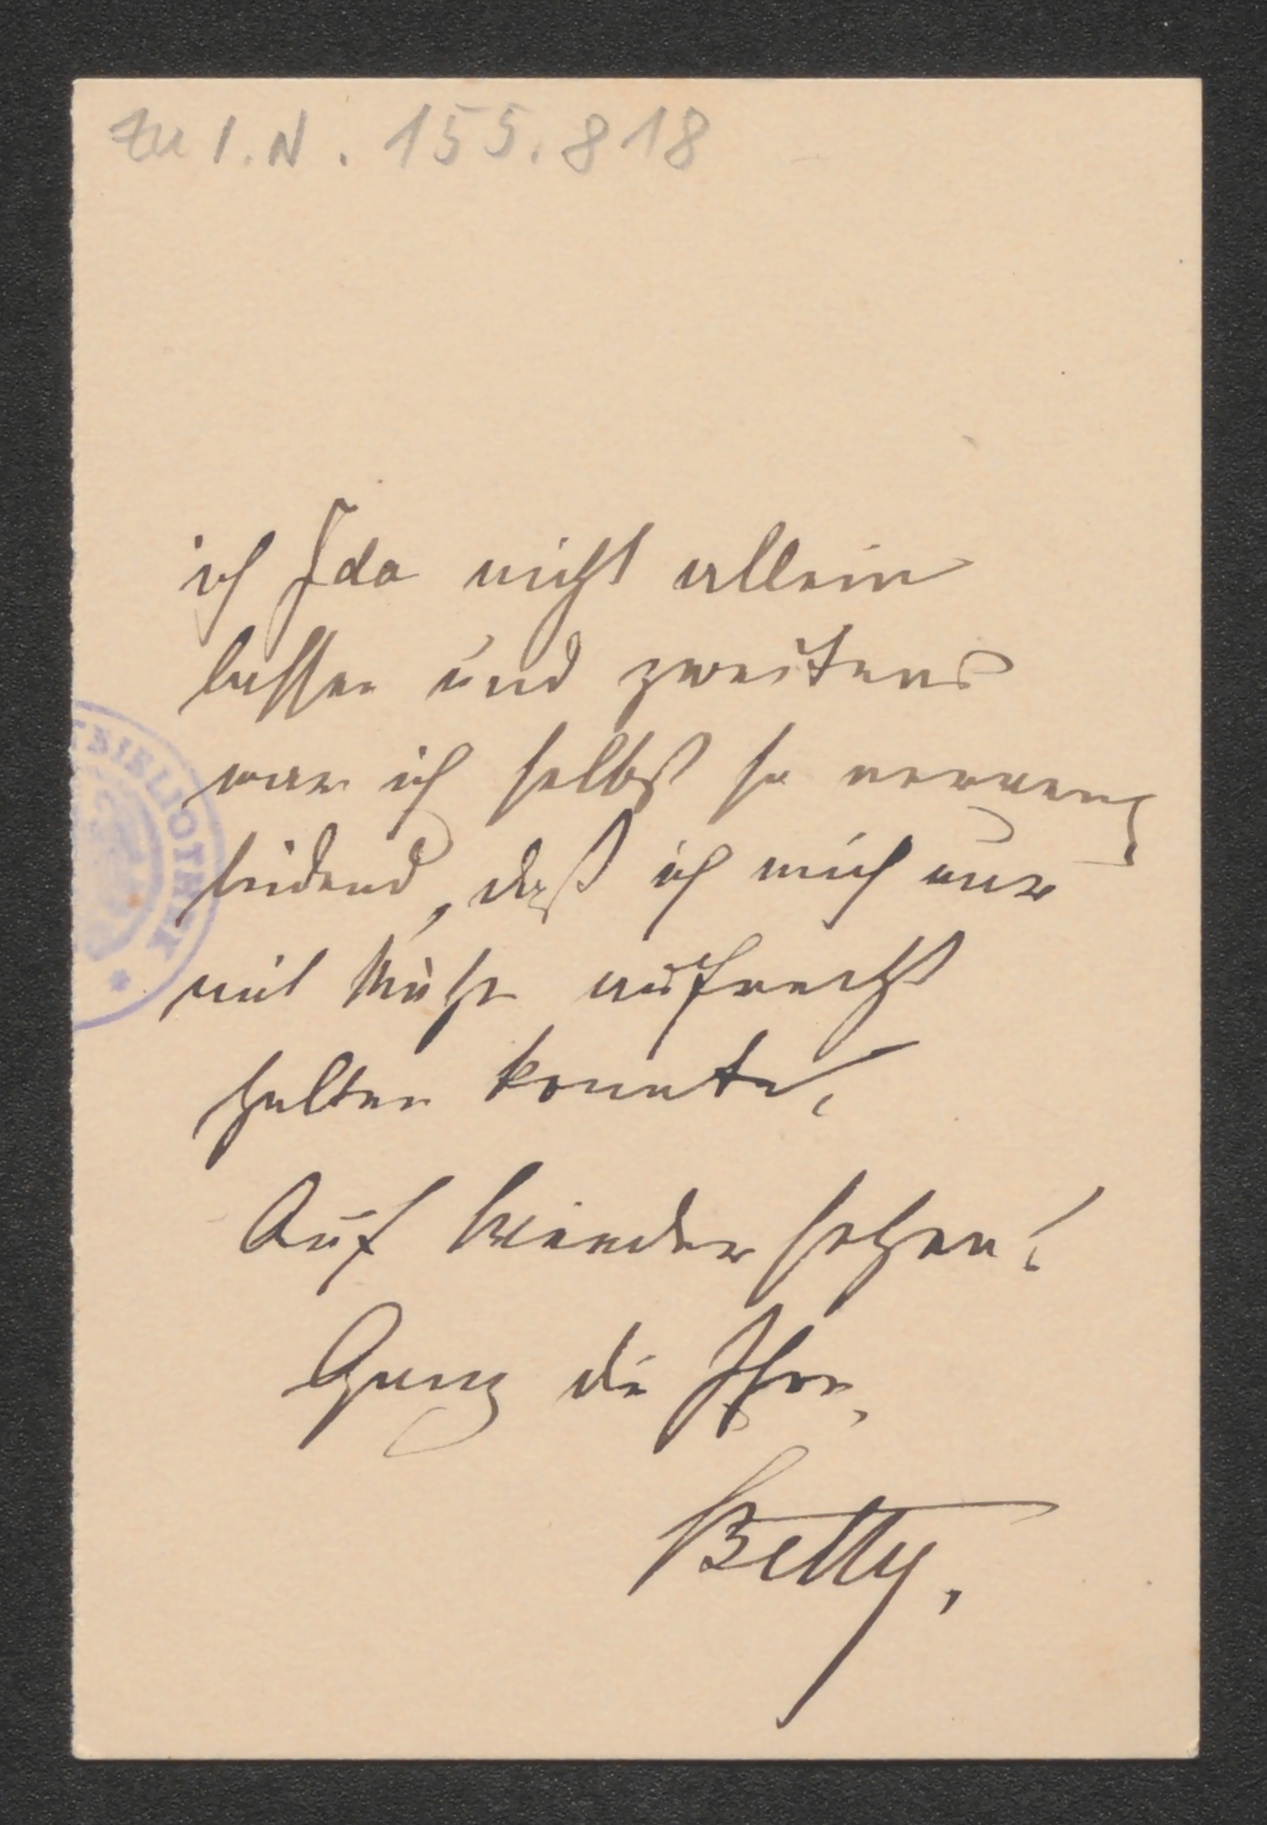 Zu I.N. 155.818
ich Ida nicht allein
lassen und zweitens
war ich selbst so nerven
leidend, daß ich mich nur
mit Mühe aufrecht
halten konnte.
Auf Wiedersehen!
Ganz die Ihre,
Betty.
BIBLIOTHEK *